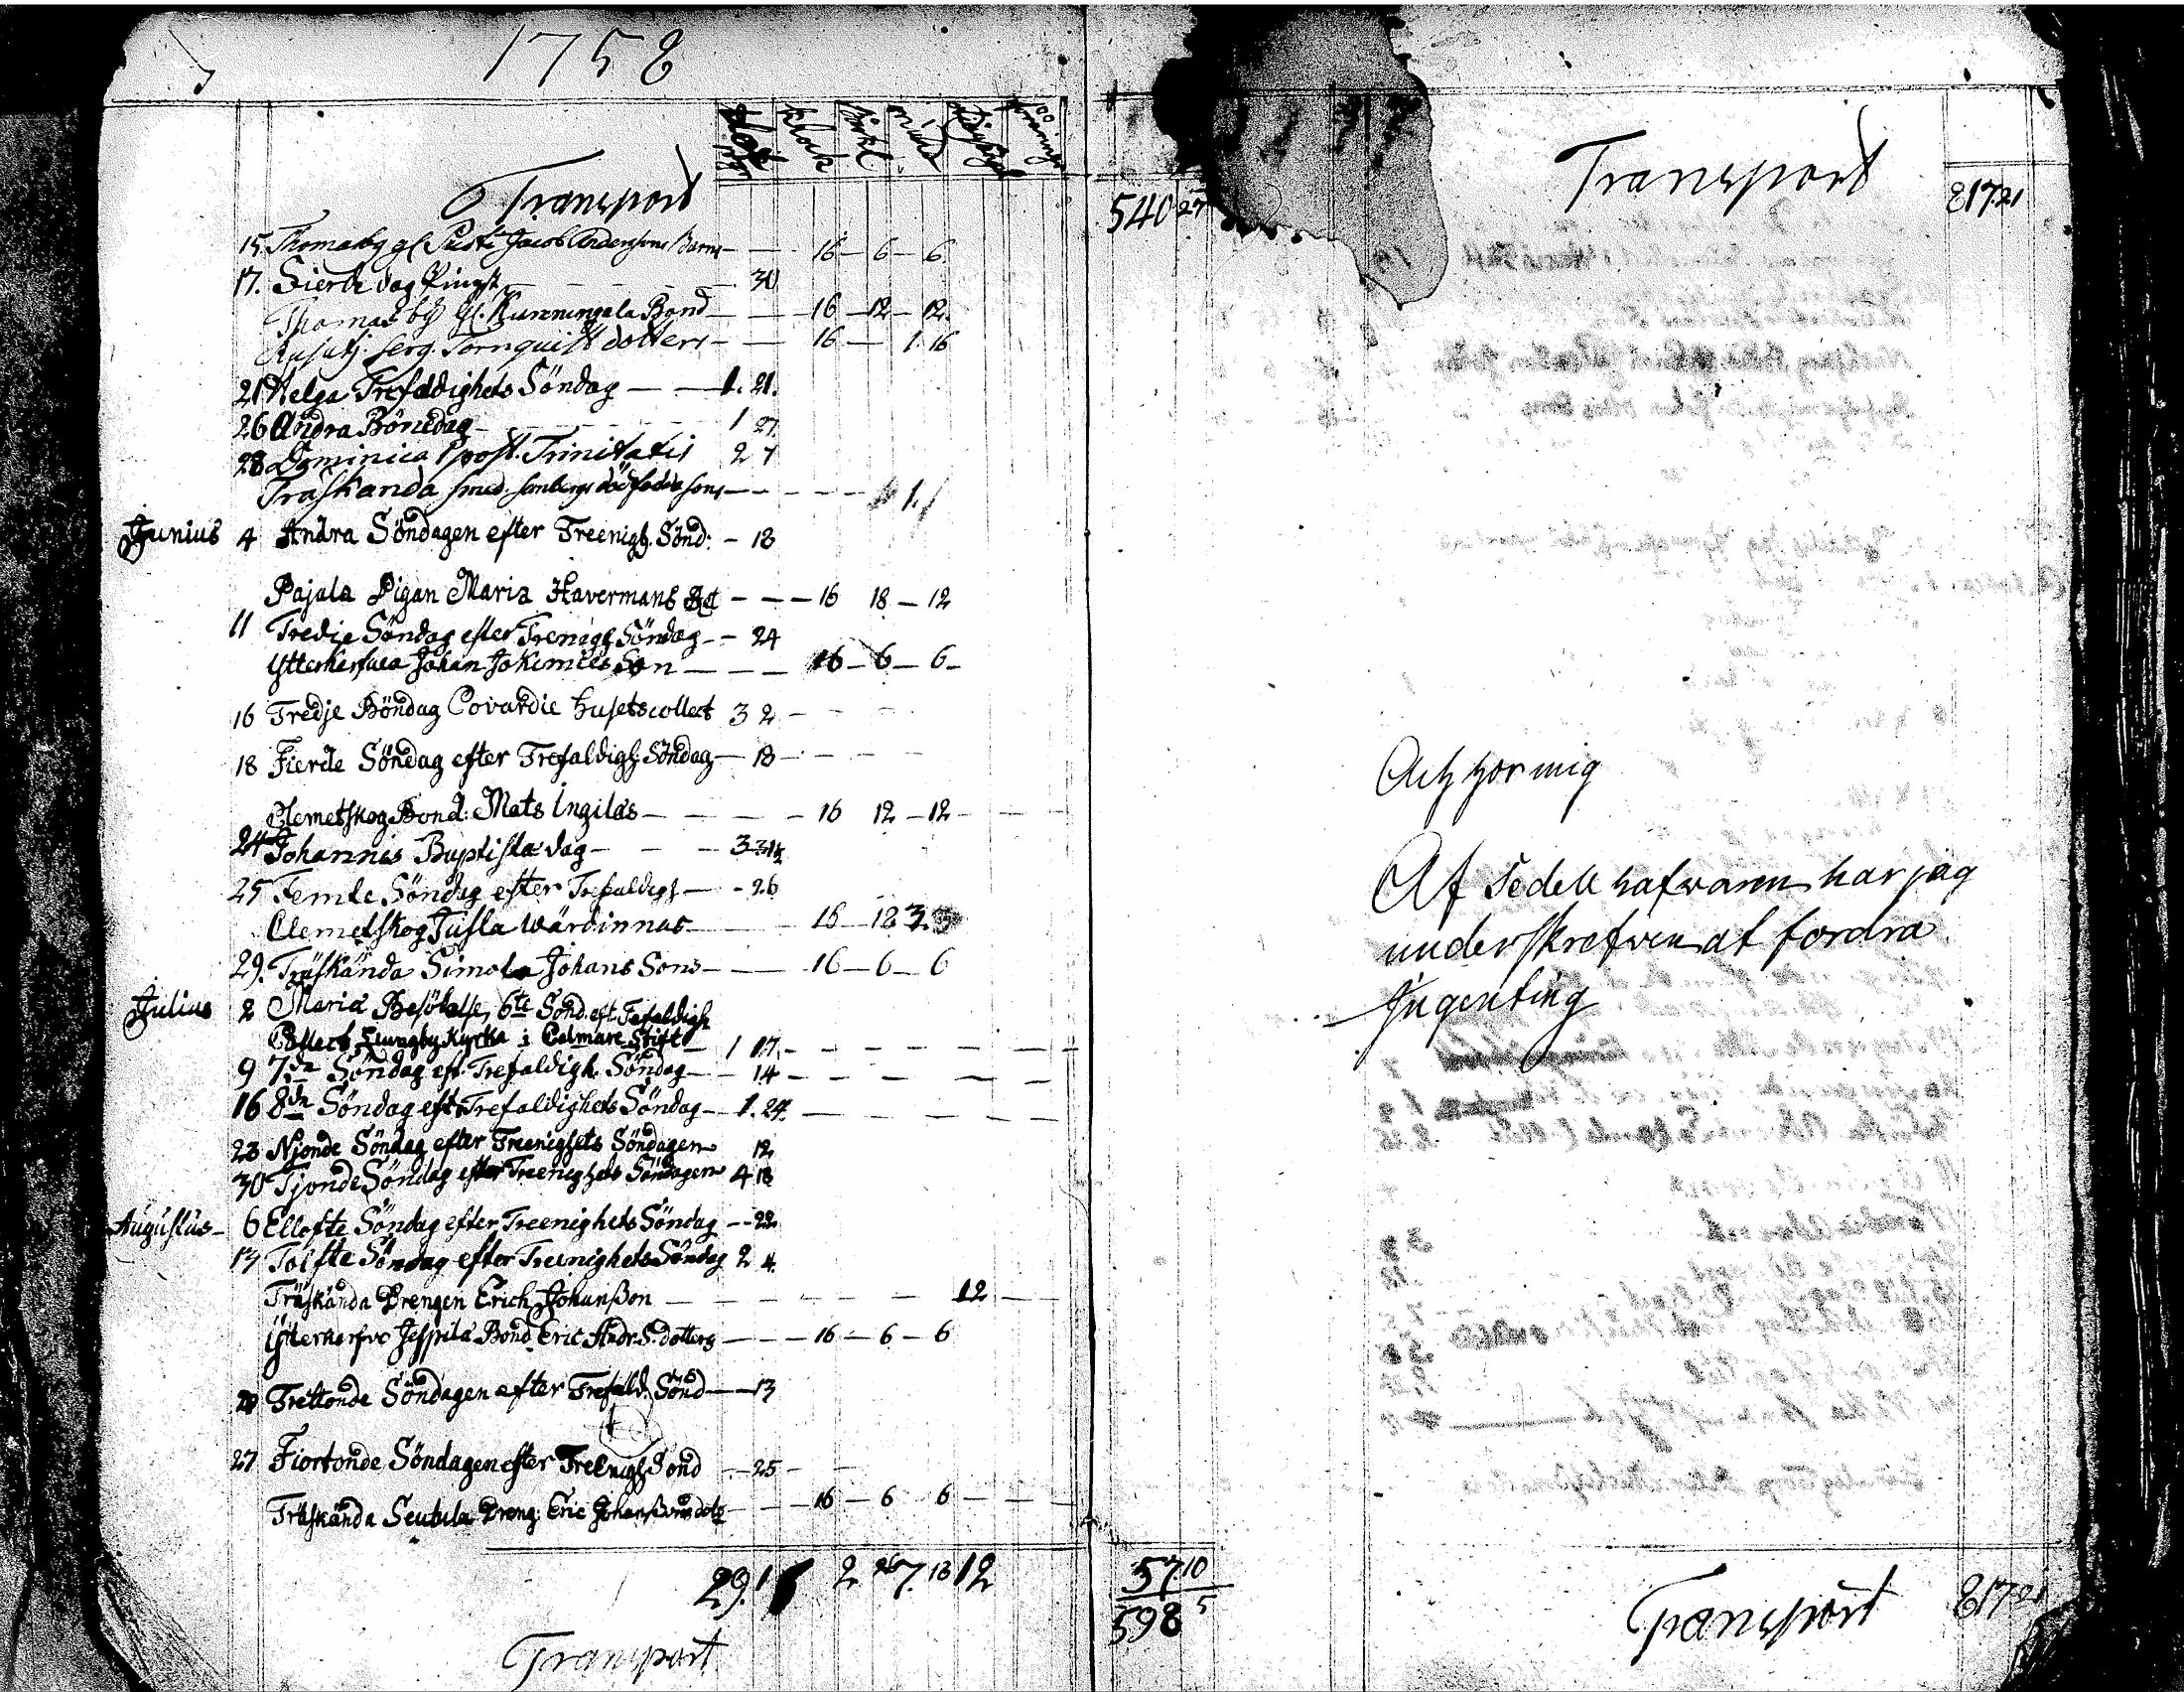 1758
Transport
540 27
15. Thomasby gl. Jacob Anderssons Barns — — 16 — 6 — 6
17. Fierde dag Pingst — 30
Thomasby gl. Bond — — 16 — 12 — 12.
serg. Tornquist dotters — — 16 — 1. 16
21 Helga Trefaldighets Söndag — — 1. 21.
26 Andra Bönedag — 1 27.
28 Dominica 1 post. Trinitatis 2 7
Träskanda smed.
Junius 4 Andra Söndagen efter Treenigh. Sönd: — 18
Pajala Pigan Maria Havermans — — — 16 18 — 12
11 Tredje Söndag efter Trenigh Söndag — — 24
Ytterkerfvea Johan — — — 16 — 6 — 6 —
16 Tredje Böndag husetscollect 3 2 —
18 Fierde Söndag efter Trefaldigh: Söndag — 18 —
Clemetskog Bond: Mats Ingilas — — — — 16 12 — 12 —
24 Johannis Baptistæ dag — — — 3
25 Femte Söndag efter Trefaldigh — - 26
Clemetskog Tusla wärdinnas — 16 — 18 3.
29. Träskända Simola Johans Sons — — 16 — 6 — 6
Julius 2 Mariæ Besökelse, 6te Sönd. eft Trefaldigh
Collect Kyrka i Calmare Stift — 1 17. —
9 7de Söndag eft. Trefaldigh. Söndag — — 14 —
16 8de Söndag eft Trefaldighets Söndag — 1. 24. —
23 Njonde Söndag efter Treenighets Söndagen 12
30 Tjonde Söndag efter Treenighets Söndagen 4 18
Augustus — 6 Ellofte Söndag efter Treenighets Söndag — - 22
13 Tolfte Söndag efter Treenighets Söndag 2 4.
Träskända Drengen Erich Johanßon — — — — 12 —
Ytterkerfvo Jeppila Bond. Eric Andr. S. dotters — — — 16 — 6 — 6
20 Trettonde Söndagen efter Trefald. Sönd — — 13
27 Fiortonde Söndagen efter Treenigh Sönd — 25 —
Träskända Seutula Dreng: Eric Johanßons — — 16 — 6 — 6 —
29. 1 2 7. 18 12
57 10
598 5
Transport
Transport
817.21
Ach hör mig
Af Sedell hafwaren har jag
underskrefwen at fordra
Ingenting
Transport
817.21